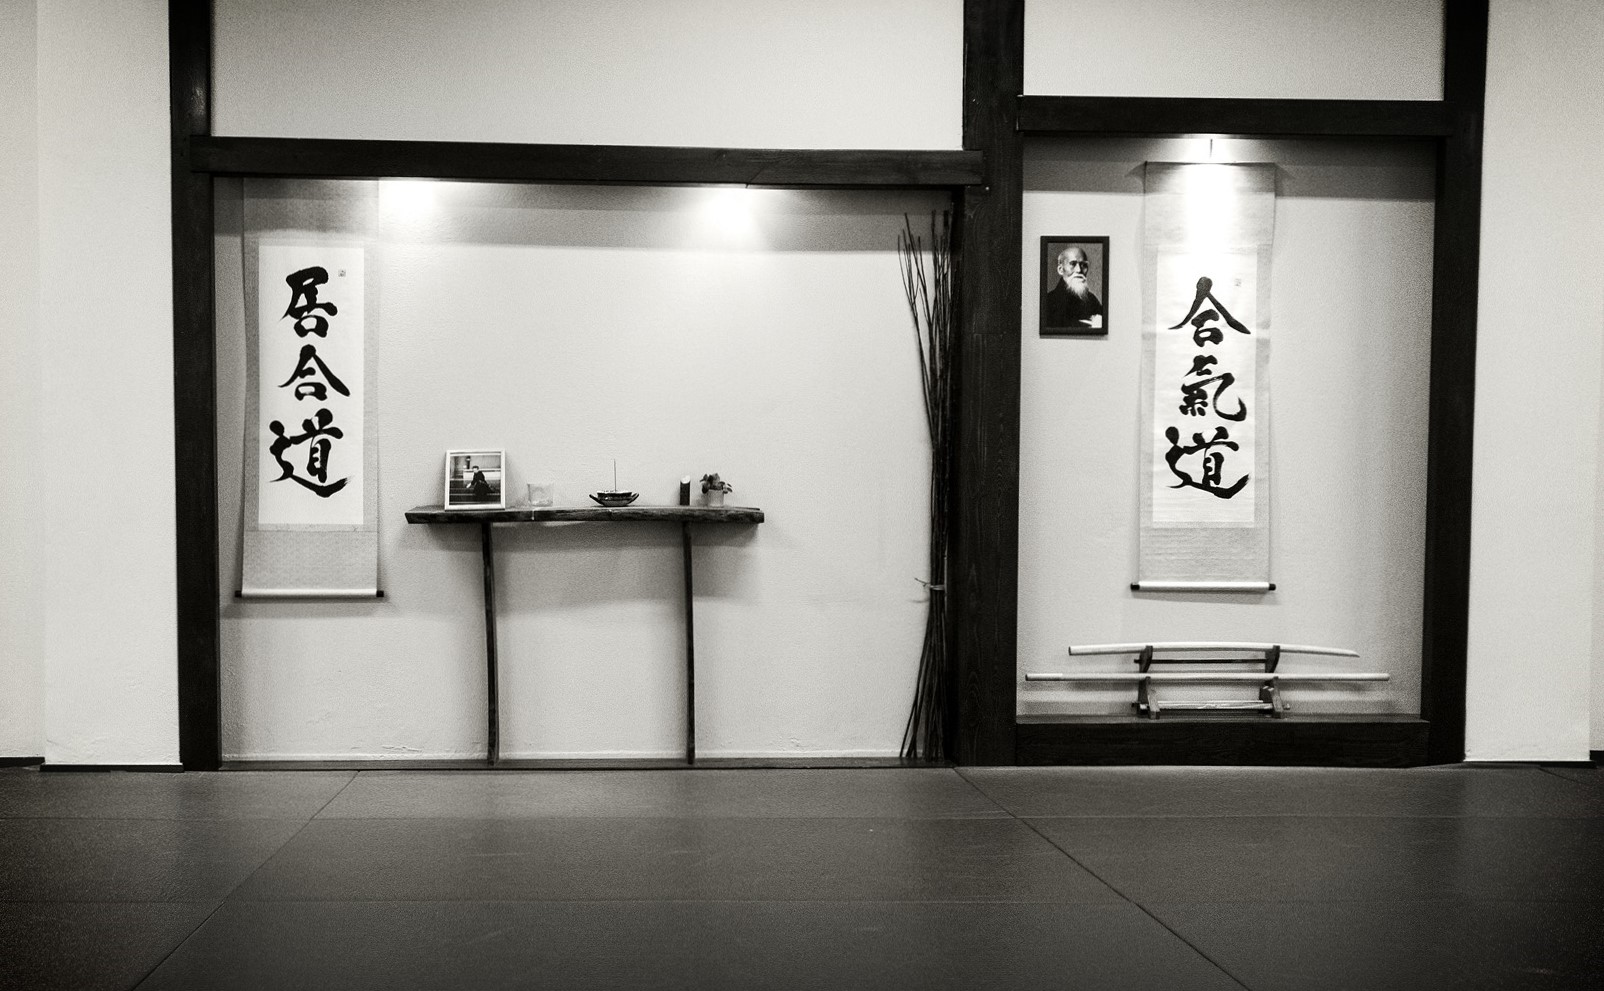 居合道
合氣道